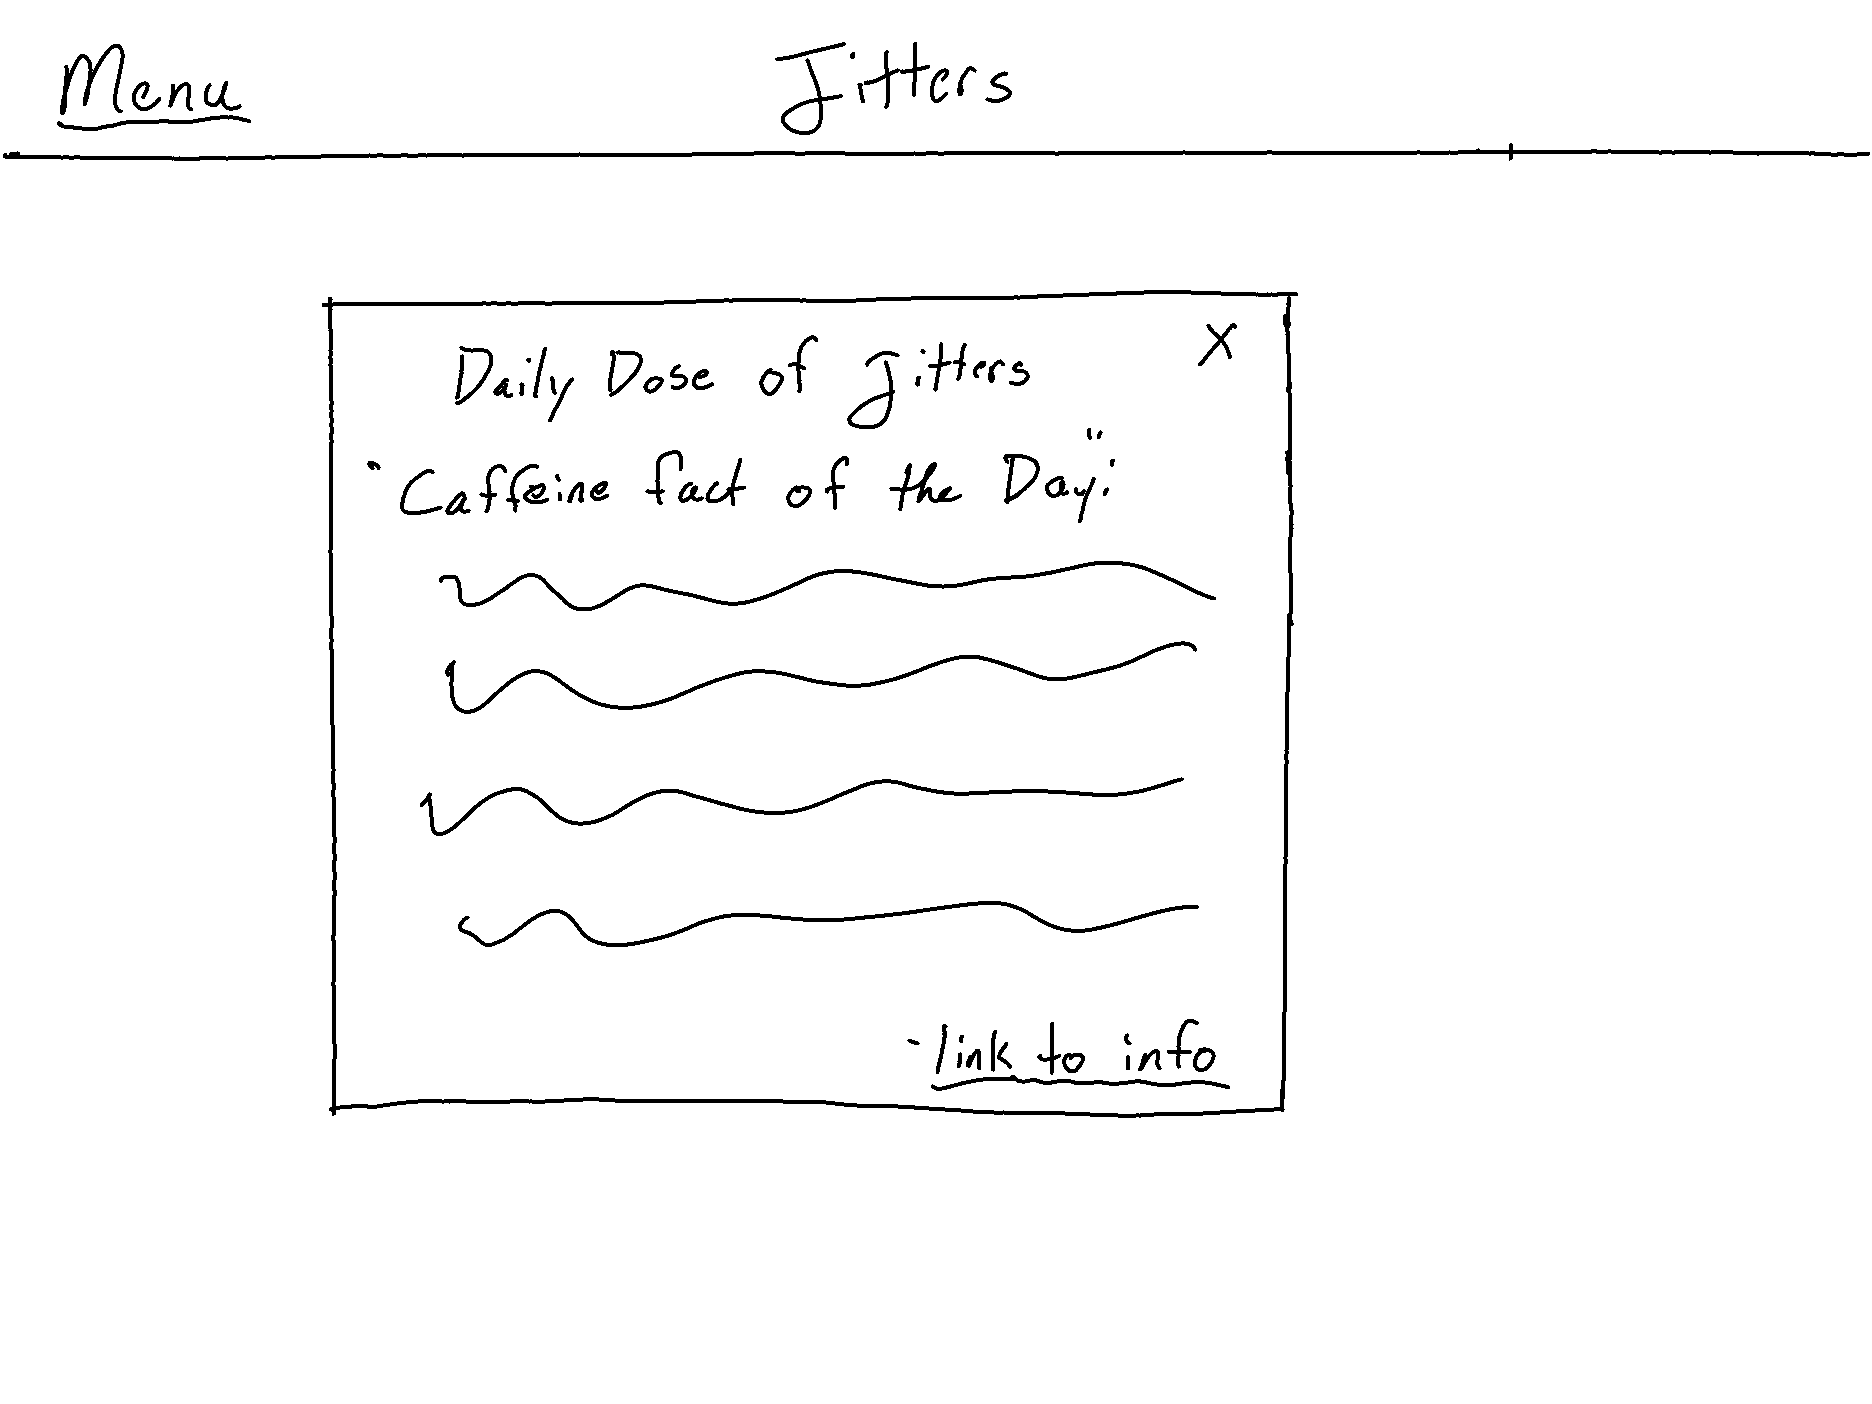 Menu
Jitters
Daily Dose of Jitters
X
"Caffeine fact of the Day":
-link to info